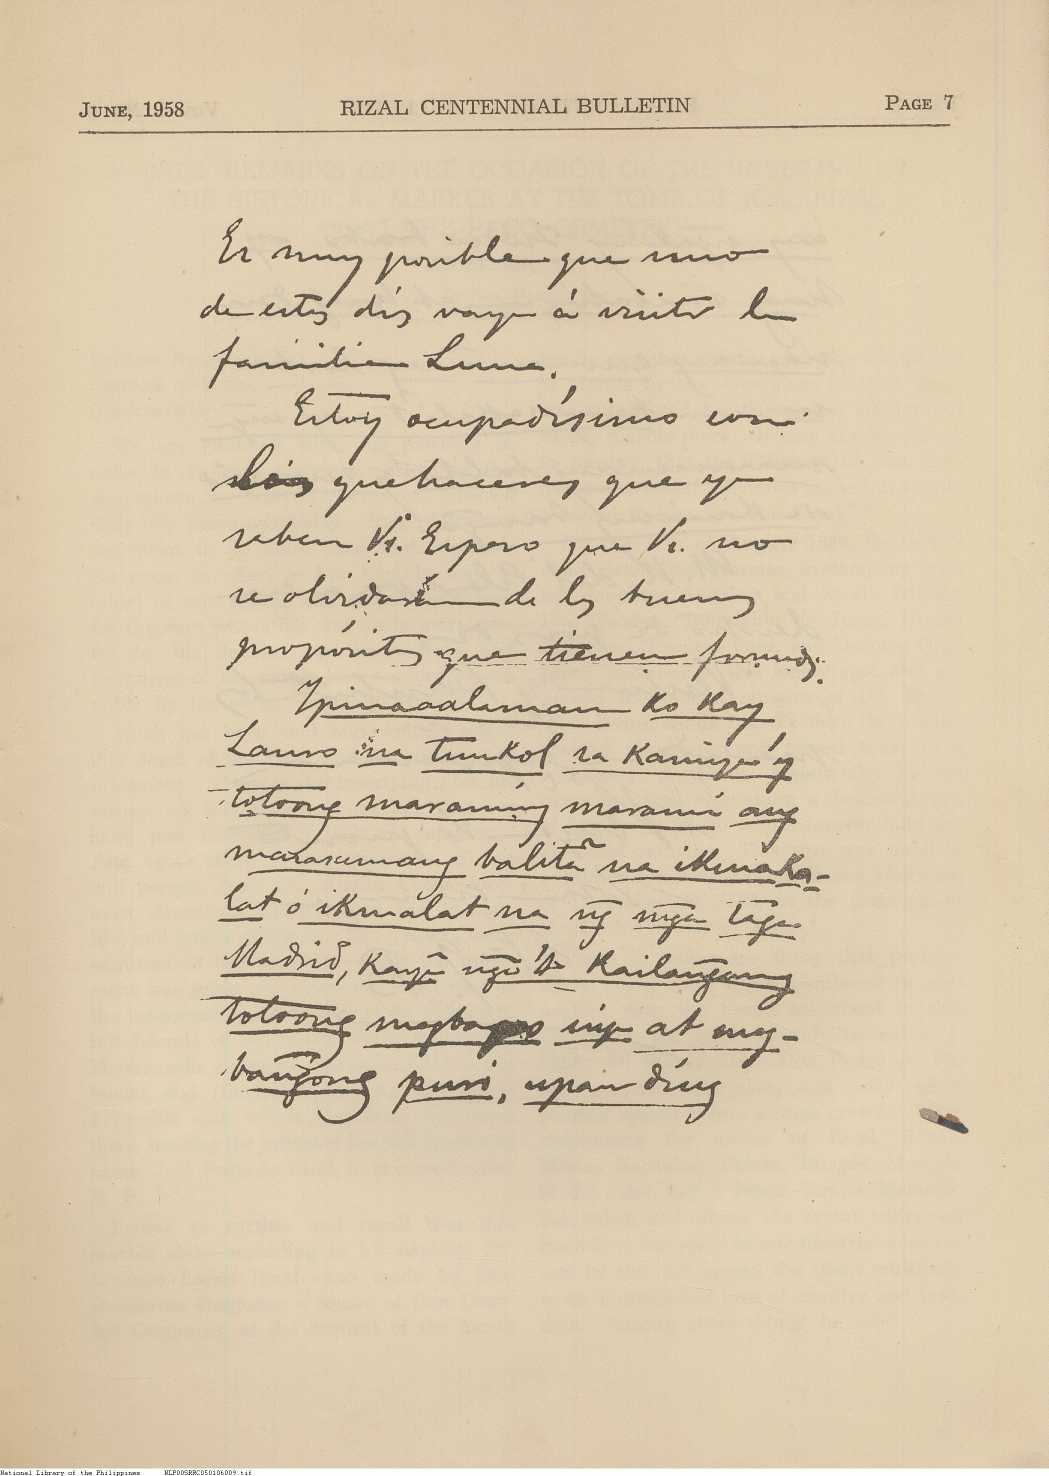 JUNE, 1958 RIZAL CENTENNIAL BULLETIN PAGE 7
Es muy posible que uno
de estos dias vaya á visitar la
familia Luna.
Estoy ocupadísimo con
los quehaceres que ya
saben Vs. Espero que Vs. no
se olvidarán de los buenos
propósitos que tienen formados.
Ipinaaalaman ko kay
Lauro na tunkol sa kaniya'y
totoong maraming marami ang
masasamang balita na ikinaka-
lat ó ikinalat na ng mga taga
Madrid, kaya nga't kailangang
totoong magbago siya at mag-
bangong puri, upan ding
National Library of the Philippines NLP00SRRC050106009.tif